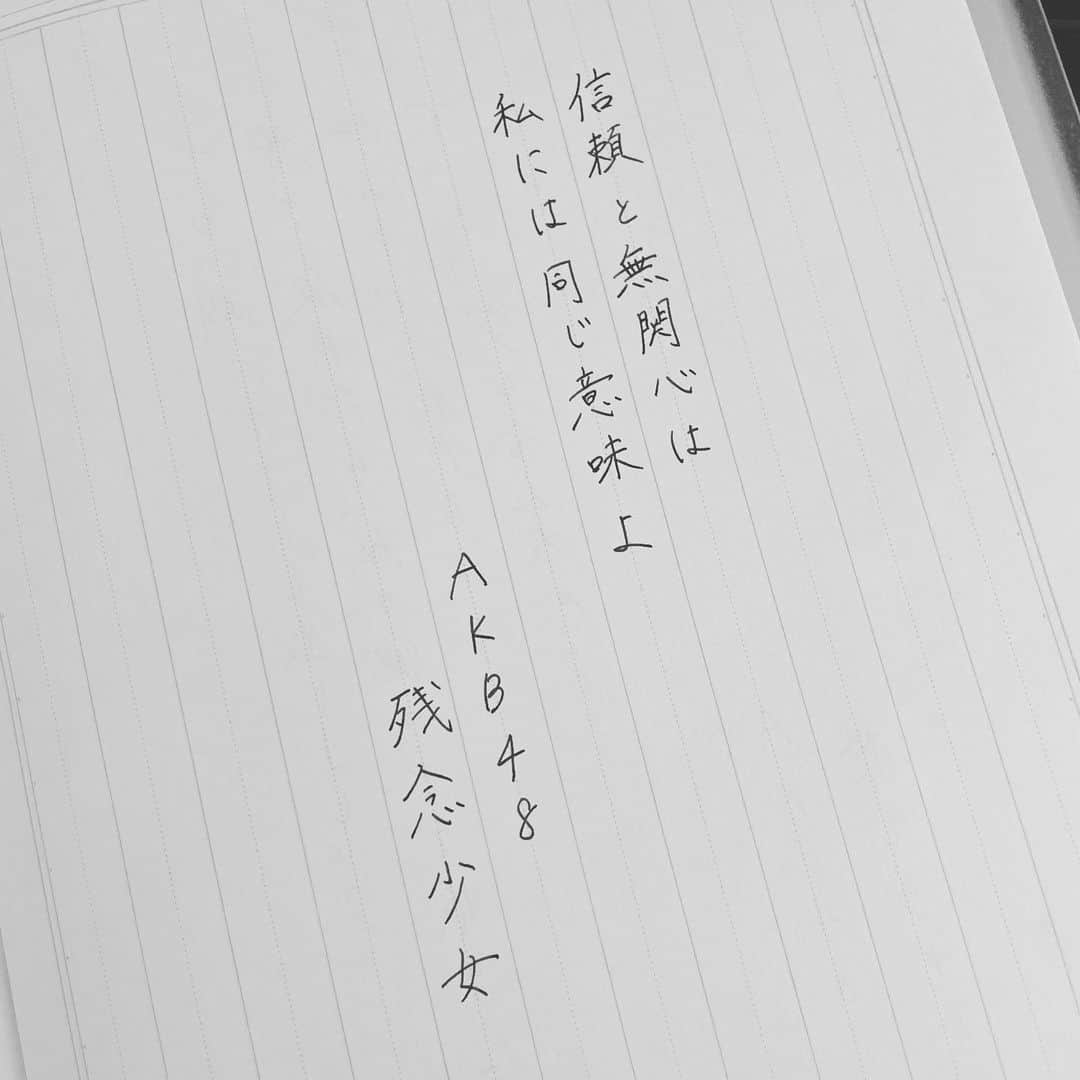 信頼と無関心は
私には同じ意味よ
AKB48
残念少女